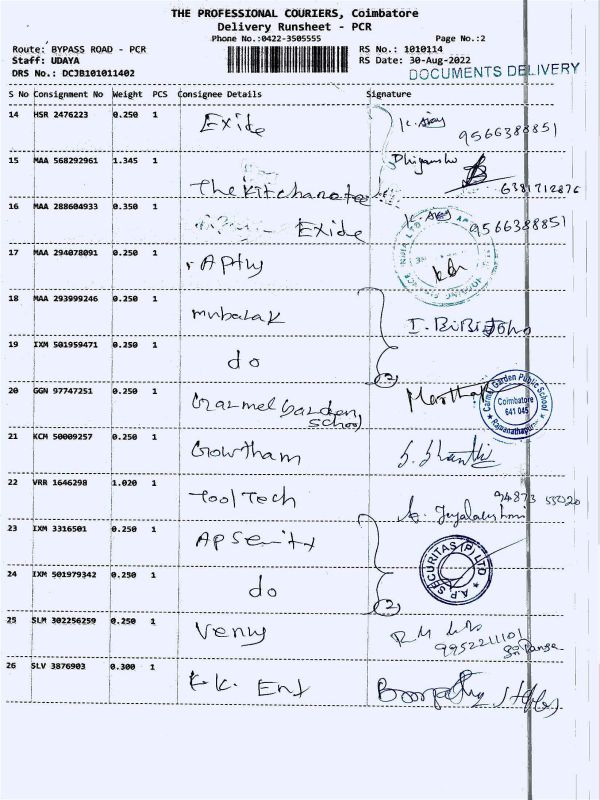 THE PROFESSIONAL COURIERS, Coimbatore
Delivery Runsheet - PCR
Phone No.:0422-3505555 Page No.:2
Route: BYPASS ROAD - PCR RS No.: 1010114
Staff: UDAYA RS Date: 30-Aug-2022
DRS No.: DCJB101011402 DOCUMENTS DELIVERY
S No Consignment No Weight PCS Consignee Details Signature
14 HSR 2476223 0.250 1 Exide K. Ajay
9566388851
15 MAA 568292961 1.345 1 The kitchanatee
6381712876
16 MAA 288604933 0.350 1 Exide K. Ajay 9566388851
17 MAA 294078091 0.250 1
18 MAA 293999246 0.250 1 mubarak
19 IXM 501959471 0.250 1 do (2)
20 GGN 97747251 0.250 1 Garden school
Carmel Garden Public School
Coimbatore
641 045
Ramanathapuram
21 KCM 50009257 0.250 1 Gowtham S. Shanthi
22 VRR 1646298 1.020 1 Tool Tech 94873 55020
23 IXM 3316501 0.250 1
A.P. SECURITAS (P) LTD
24 IXM 501979342 0.250 1 do (2)
25 SLM 302256259 0.250 1 Venu 9952211101
26 SLV 3876903 0.300 1 K.K. Ent